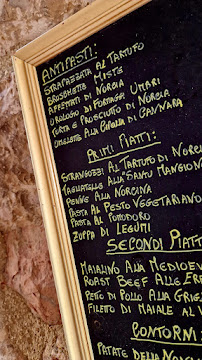 ANTIPASTI:
STRAPAZZATA AL TARTUFO
BRUSCHETTE MISTE
AFFETTATI DI NORCIA
OROLOGO DI FORMAGGI UMBRI
TORTA E PROSCIUTTO DI NORCIA
OMELETTE ALLA CIPOLLA DI CANNARA
PRIMI PIATTI:
STRANGOZZI AL TARTUFO DI NORC
TAGLIATELLE ALLA "SANTO MANGIONE
PENNE ALLA NORCINA
PASTA AL PESTO VEGETARIANO
PASTA AL POMODORO
ZUPPA DI LEGUMI
SECONDI PIATT
MAIALINO ALLA MEDIOEV
ROAST BEEF ALLE ERB
PETTO DI POLLO ALLA GRIG
FILETTO DI MAIALE AL
CONTORNI:
PATATE DELLA